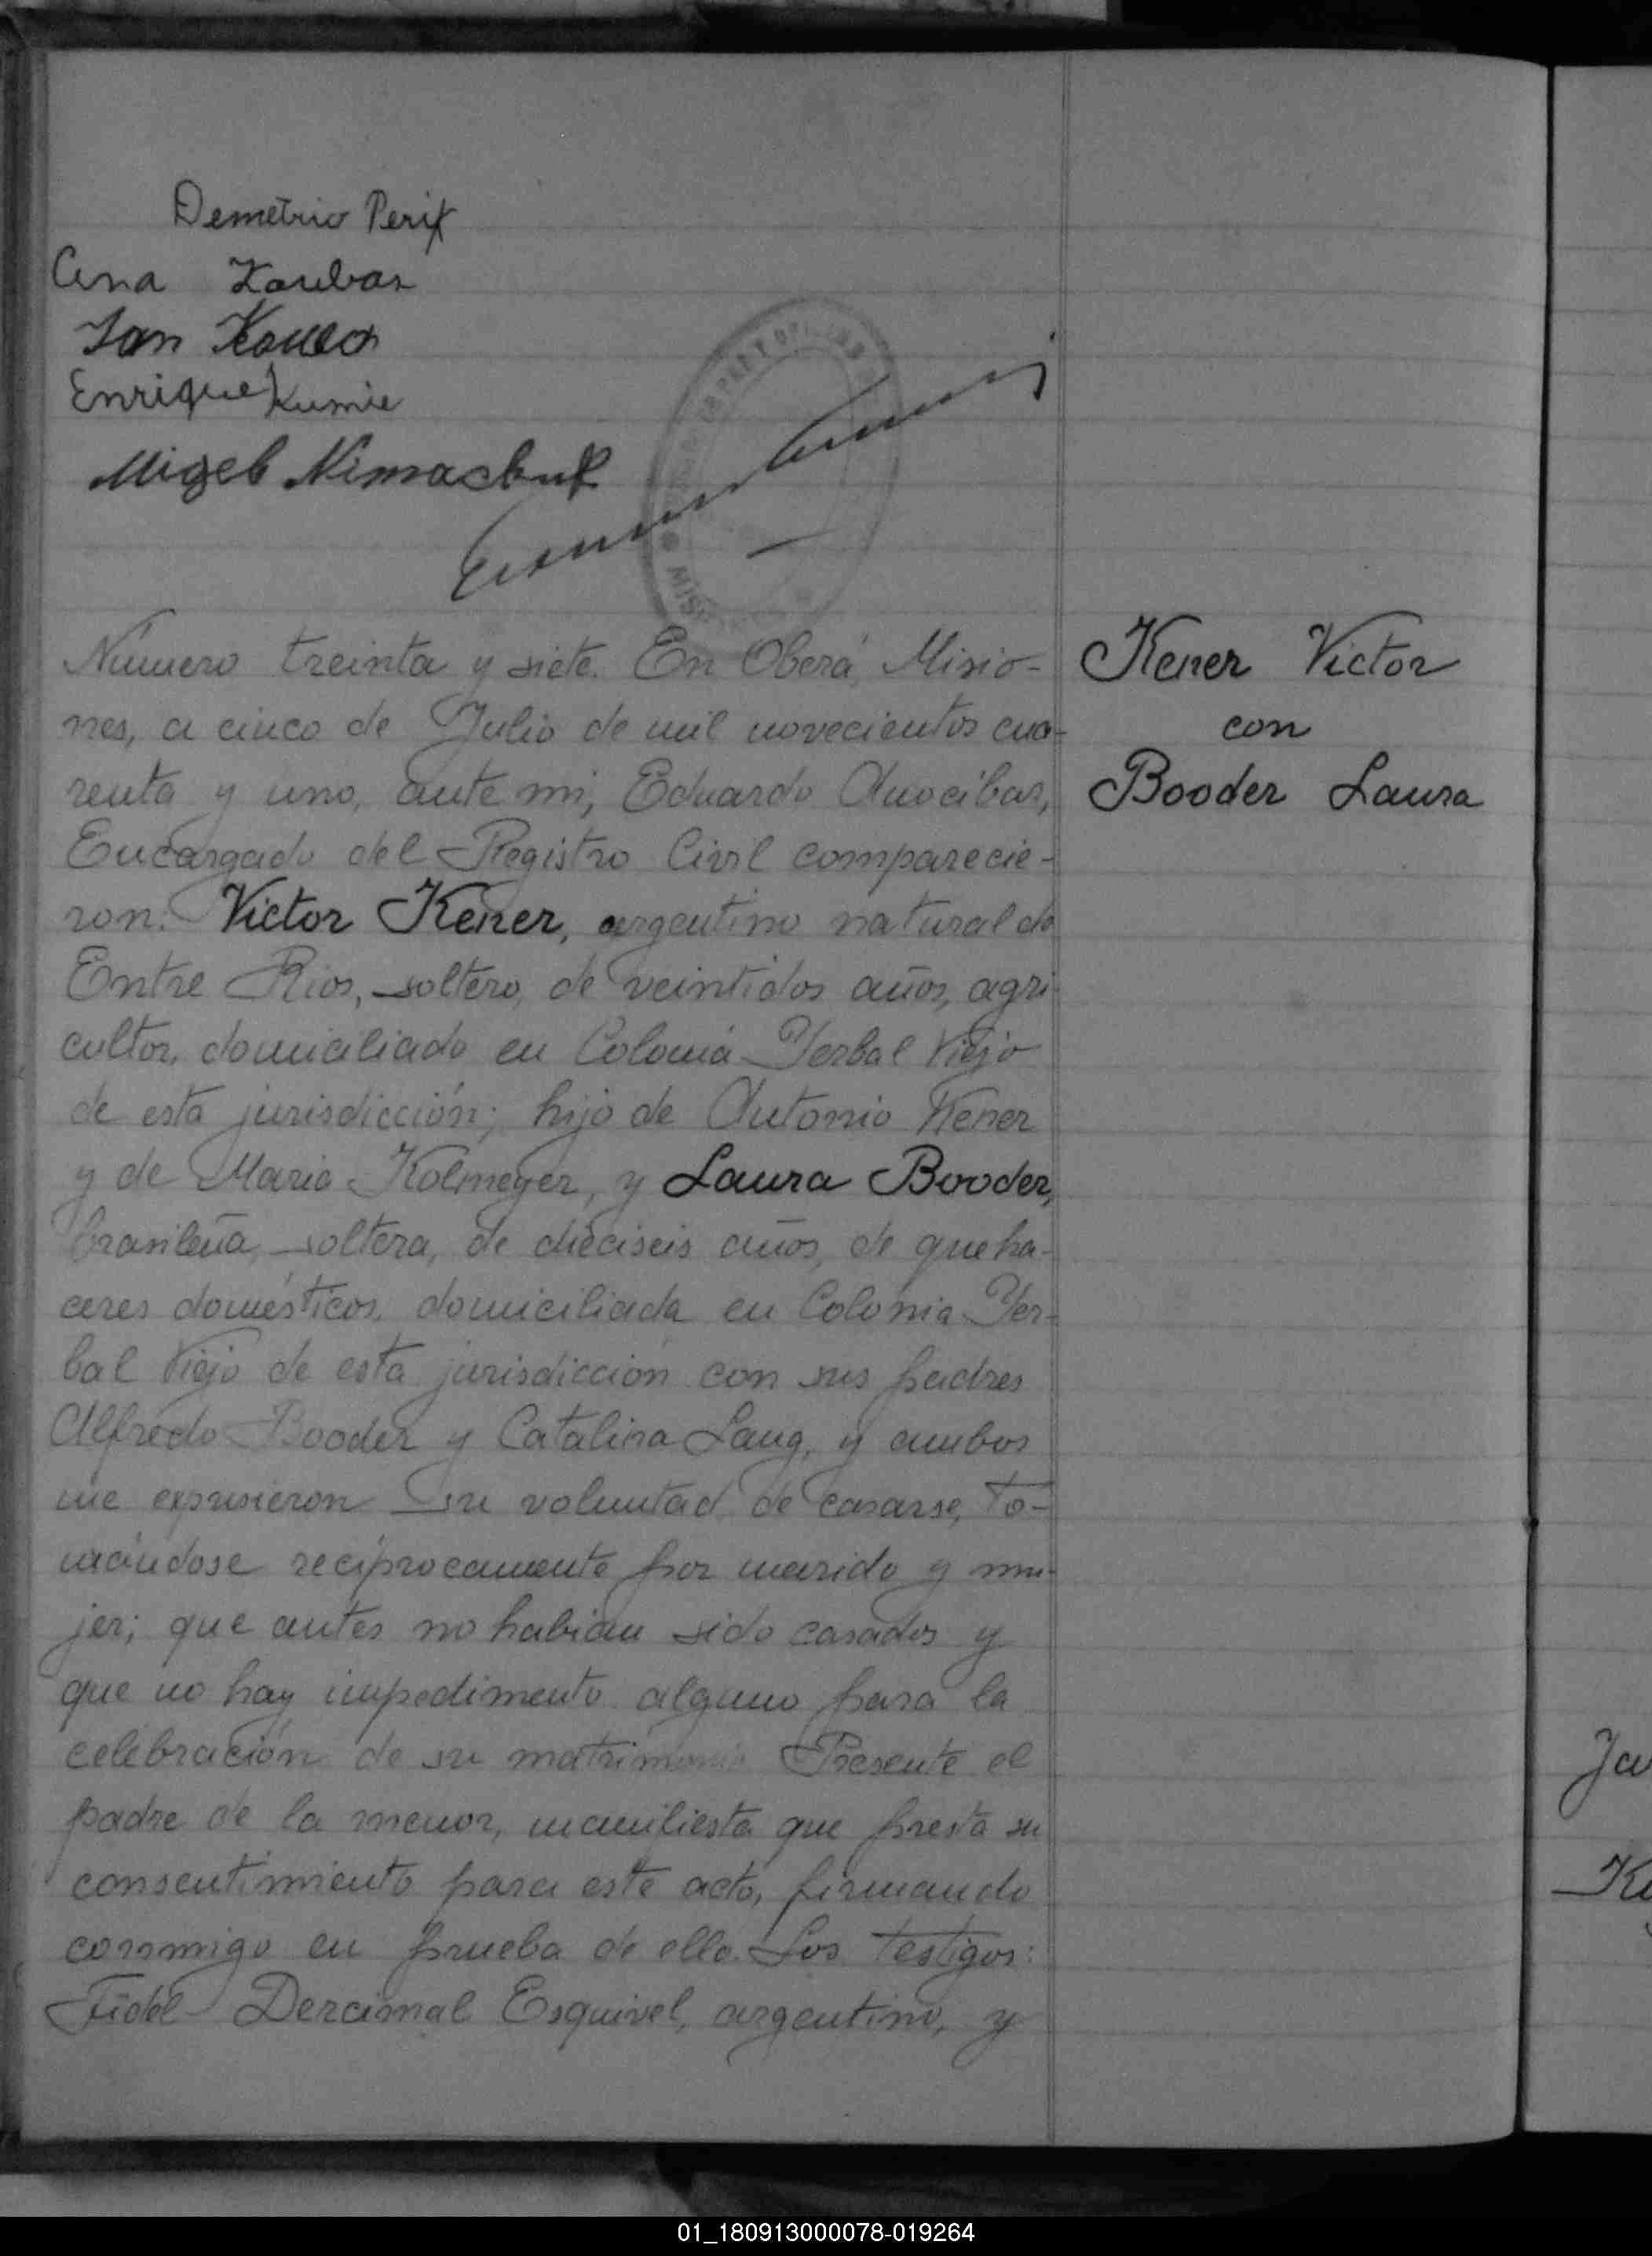 Demetrio Perix
Ana
Jan
Enrique Kumie
Migeb Nimachuk
MIS
Número treinta y siete. En Oberá, Misio-
nes, a cinco de Julio de mil novecientos cua-
renta y uno, ante mi, Eduardo Anocibar,
Encargado del Registro Civil comparecie-
ron: Victor Kener, argentino natural de
Entre Rios, soltero, de veintidos años, agri-
cultor, domiciliado en Colonia Yerbal Viejo
de esta jurisdicción; hijo de Antonio Kener
y de Maria Kolmeyer, y Laura Booder,
brasileña, soltera, de dieciseis años, de queha-
ceres domésticos, domiciliada en Colonia Yer-
bal Viejo de esta jurisdicción con sus padres
Alfredo Booder y Catalina Lang, y ambos
me expusieron su voluntad de casarse, to-
mándose reciprocamente por marido y mu-
jer; que antes no habian sido casados y
que no hay impedimento alguno para la
celebración de su matrimonio Presente el
padre de la menor, manifiesta que presta su
consentimiento para este acto, firmando
conmigo en prueba de ello. Los testigos:
Fidel Dercimal Esquivel, argentino, y
Kener Victor
con
Booder Laura
Ja
K
01_180913000078-019264